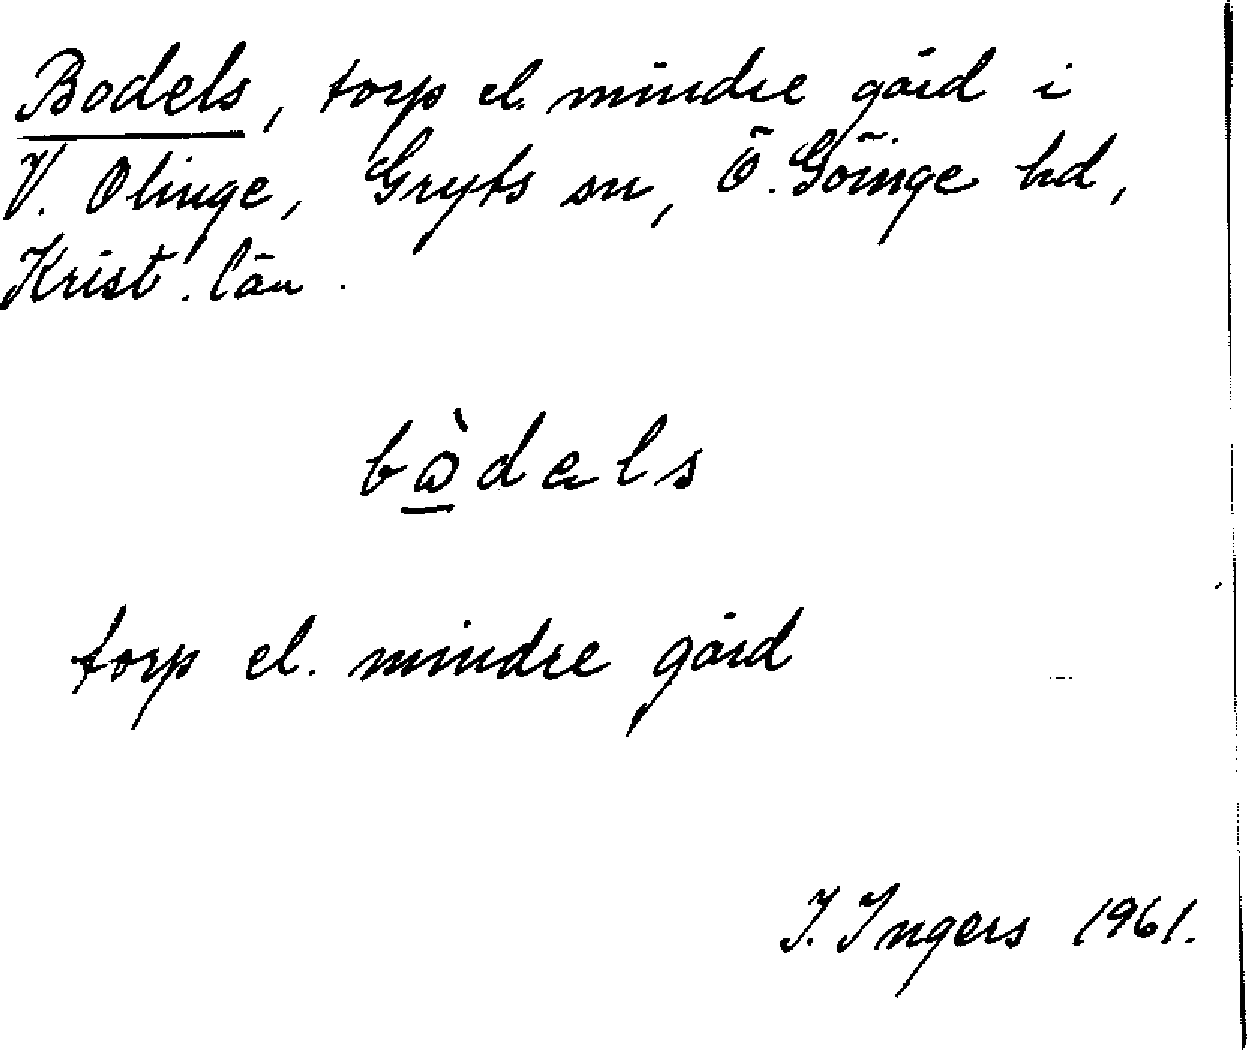 Bodels, torp el. mindre gård i
V. Olinge, Gryts sn, Ö. Göinge hd,
Krist. län.
bὼ̲dəls
torp el. mindre gård
I. Ingers 1961.